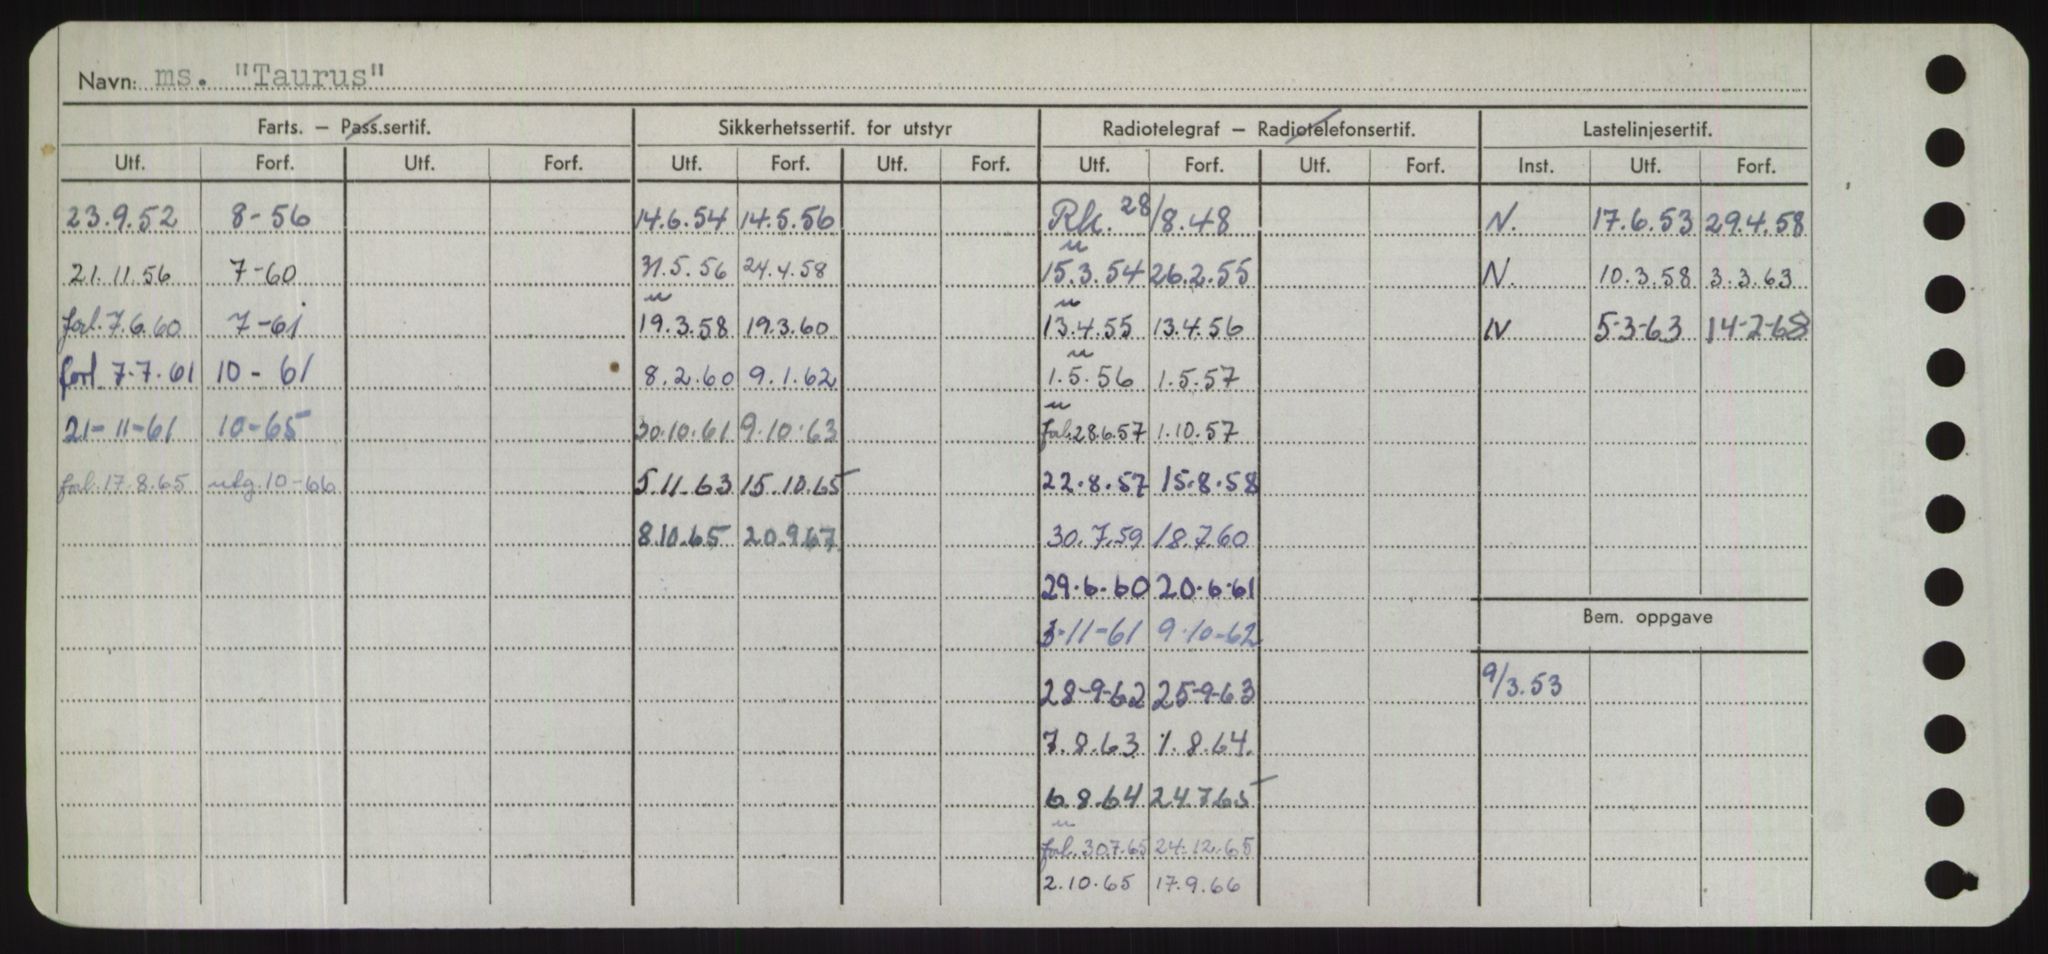 Navn: ms. "Taurus"
Farts. — Pass.sertif. Sikkerhetssertif. for utstyr Radiotelegraf — Radiotelefonsertif. Lastelinjesertif.
Utf. Forf. Utf. Forf. Utf. Forf. Utf. Forf. Utf. Forf. Utf. Forf. Inst. Utf. Forf.
23.9.52 8-56 14.6.54 14.5.56 Rk. 28/8.48 N. 17.6.53 29.4.58
21.11.56 7-60 31.5.56 24.4.58 15.3.54 26.2.55 N. 10.3.58 3.3.63
forl. 7.6.60 7-61 19.3.58 19.3.60 13.4.55 13.4.56 N 5-3-63 14-2-68
forl. 7-7-61 10-61 8.2.60 9.1.62 1.5.56 1.5.57
21-11-61 10-65 30.10.61 9.10.63 forl. 28.6.57 1.10.57
forl. 17.8.65 utg. 10-66 5.11.63 15.10.65 22.8.57 15.8.58
8.10.65 20.9.67 30.7.59 18.7.60
29.6.60 20.6.61
Bem. oppgave
3-11-61 9-10-62
9/3.53
28-9-62 25-9-63
7.8.63 1.8.64.
6.8.64 24.7.65
forl. 30.7.65 24.12.65
2.10.65 17.9.66